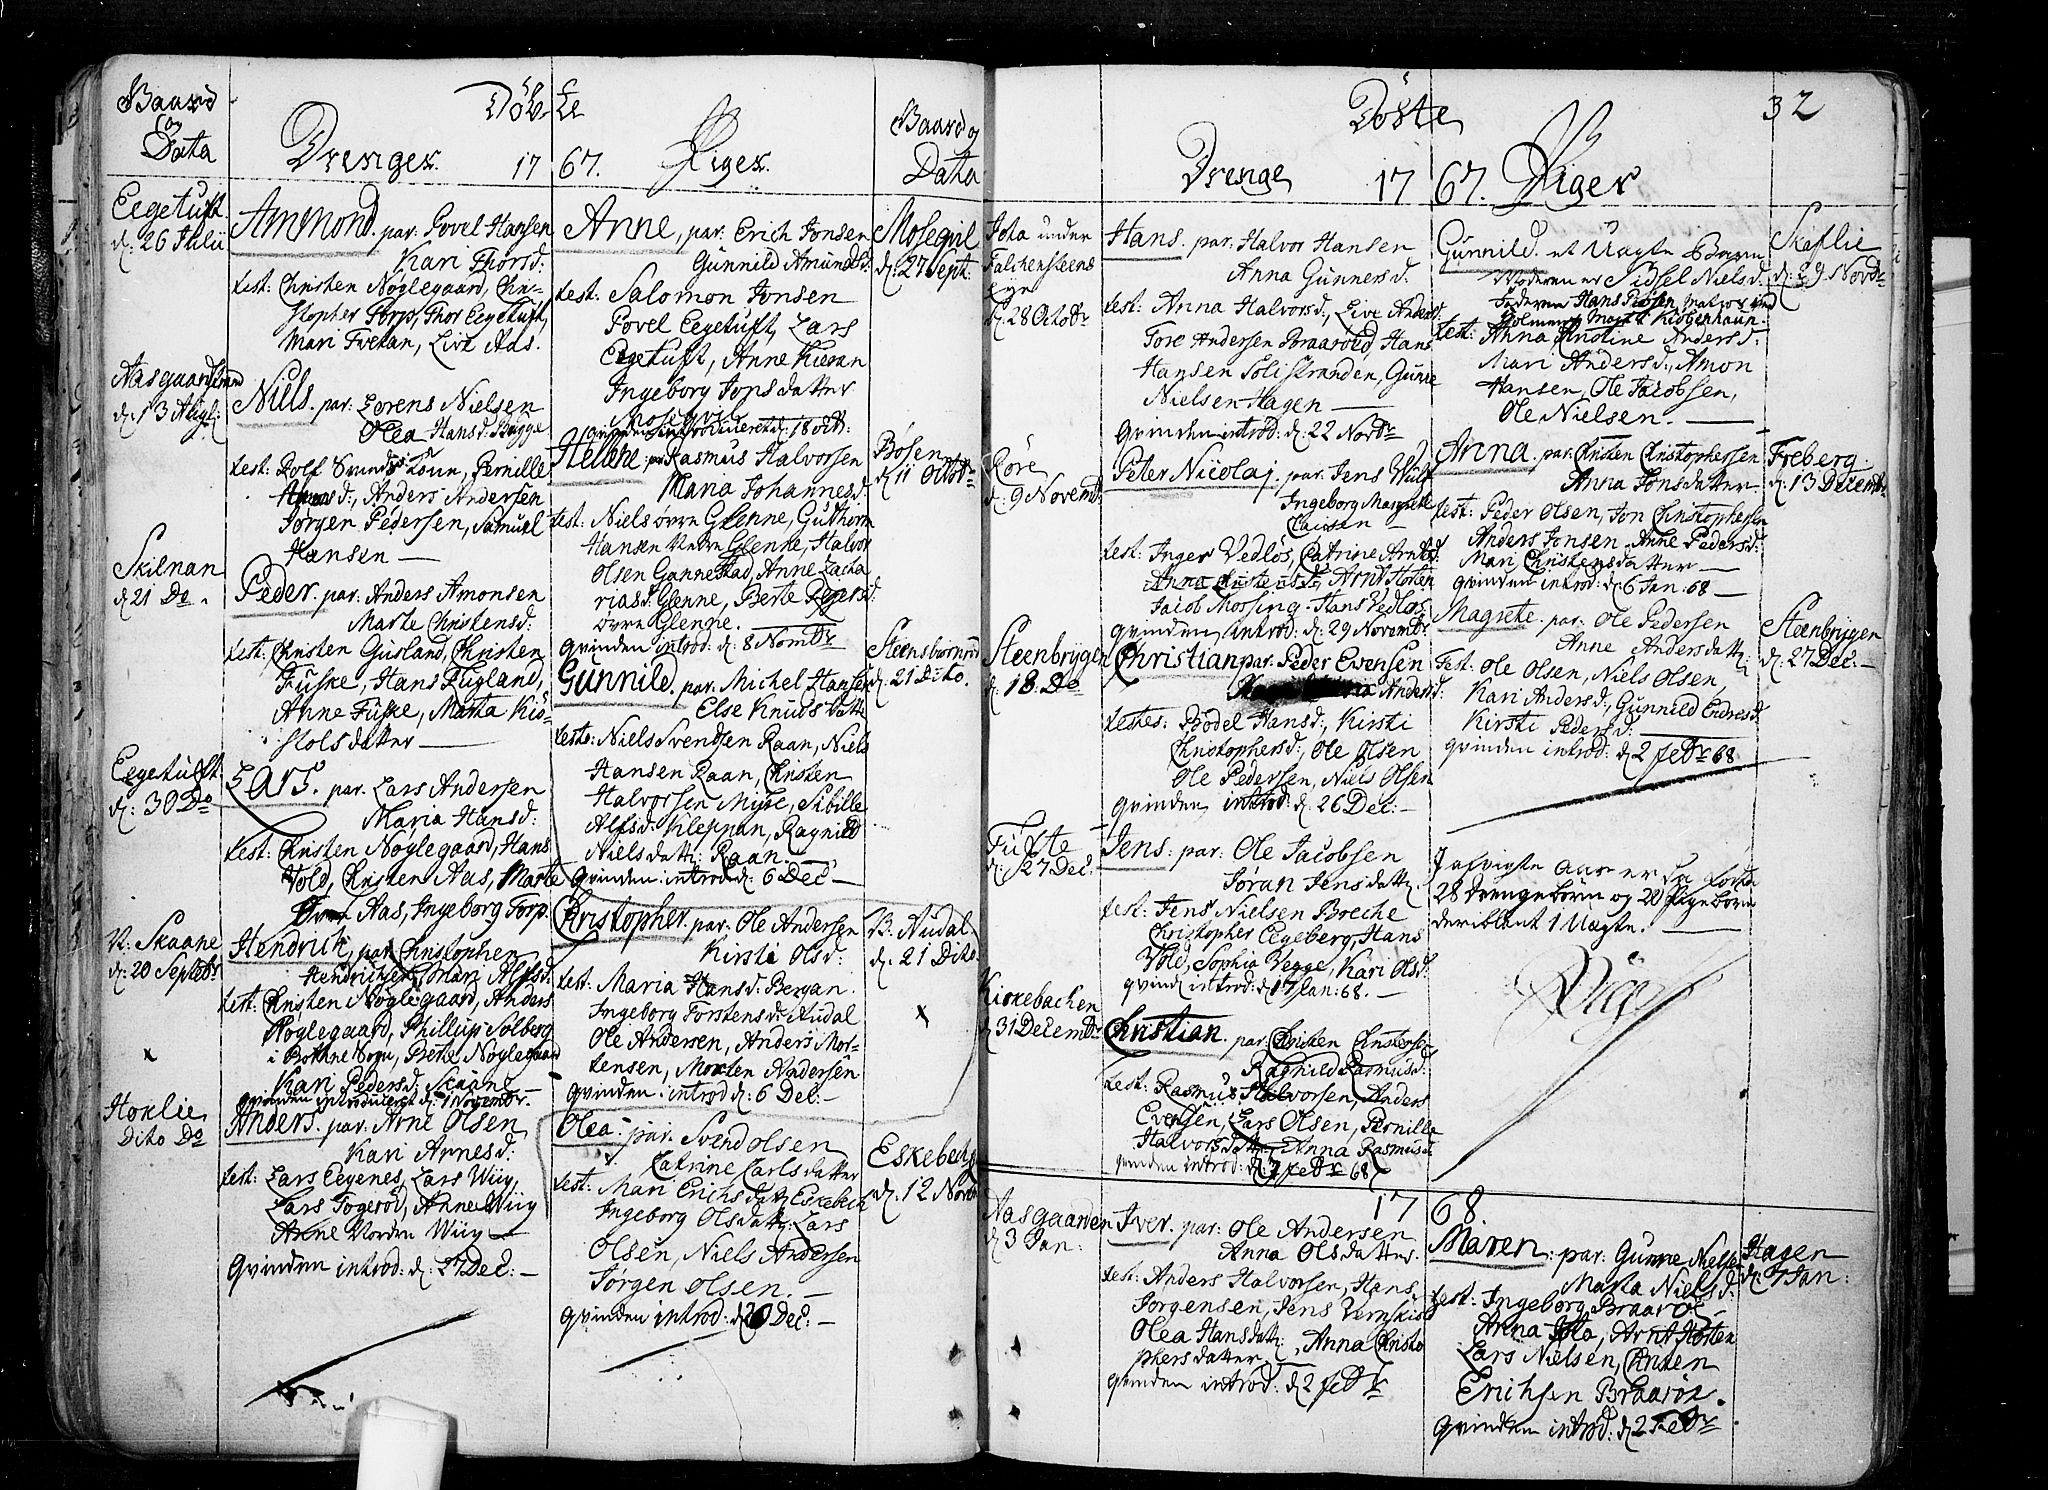 Baard
og
Data
Döb-
te
Drenger. 17
67. Piger.
Baard og
Data
Eegetuft
d: 26 Julii
Ammond. par: Povel Hansen
Kari Thorsd:
test: Christen Nøglegaard, Chri-
stopher Torp, Thor Eegetuft,
Mari Fretan, Live Aas.
Aasgaardstrand
d. 13 Aug:
Niels. par: Lorens Nielsen
Olea Hansd: Bugge
test: Rolf Pernille
Hansd:, Anders Andersen
Jørgen Pedersen, Samuel
Hansen —
Skilnan
d 21 Do.
Peder. par: Anders Amonsen
Marte Christensd:
test: Christen Gusland, Christen
Fuske, Hans Fugland,
Anne Fuske, Marta Kiö-
stolsdatter —
Eegetuft
d: 30 Do
Lars. par. Lars Andersen
Maria Hansd:
test: Christen Nøylegaard, Hans
Vold, Christen Aas, Marte
Aas, Ingeborg Torp.
N. Skaane
d: 20 Septbr
Hendrich, par: Christopher
Hendrichsen, Mari Alfsd:
test: Christen Nøglegaard, Anders
Nøglegaard, Phillup Solberg
i Bothne Sogn, Berte Nøylegaard
Kari Pedersd: Skaane —
qvinden introduceret d: 1 Novembr.
x
Hoklie
Dito Do
Anders. par: Arne Olsen
Kari Arnesd:
test: Lars Eegenes, Lars Wiiy,
Lars Fogerød, Anne Wiiy
Anne Norden Wiiy —
Qvinden introd: d: 27 Dec: —
Anne, par: Erich Jonsen
Gunnild Amundsd:
test: Salomon Jonsen
Povel Eegetuft, Lars
Eegetuft, Anne Kieran
Ingeborg Jonsdatter
Moseqvil
qvinden introduceret d: 18 octb:
Mosegvil
d: 27 Sept:
Hellene par Rasmus Halvorsen
Maria Johannesd:
test: Niels övre Glenne, Guthorm
Hansen Nedre Glenne, Halvor
Olsen Gannestad, Anne Zacha
riasd: Glenne, Berte Reyersd:
övre Glenne.
Qvinden introd: d: 8 Novmbr
Bösen
d 11 Octobr
Gunnild. par: Michel Hansen
Else Knudsdatt:
teste: Niels Svendsen Raan, Niels
Hansen Raan, Christen
Halvorsen Myhre, Sibille
Alfsd: Kleppan, Ragnild
Nielsdatt: Raan.
Qvinden: introd: d: 6 Dec —
Steensbiörnrød
d: 21 Dito.
Christopher. par: Ole Andersen
Kirsti Olsd:
test: Maria Hansd: Bergan.
Ingeborg Torstensd: Audal
Ole Andersen, Anders Mor-
tensen, Morten Andersen
Qvinden: introd d: 6 Dec: —
B. Audal
d: 21 Dito.
x
Olea: par: Svend Olsen
Catrine Carlsdatter
test: Mari Erichsdatt: Eskebech
Ingeborg Olsdatt: Lars
Olsen, Niels Andersen
Jørgen Olsen. —
Qvinden introd: d 20 Dec: —
Eskebech
d: 12 Novbr
Döbte
32
Drenge 17
67. Piger
Jota under
Falchensteens
Eye
d: 28 Octobr
Hans. par: Halvor Hansen
Anna Gunnersd.
test: Anna Halvorsd., Live Andersd:
Tore Andersen Braarød, Hans
Hansen Solistranden, Gunne
Nielsen Hagen —
Qvinden introd: d: 22 Novbr
Röre
d. 9 Novemb:
Peter Nicolaj. par: Jens Wulf
Ingeborg Magrete
test: Inger Vedlös, Catrine Arntsd:
Anna Christensd: Arnt Horten
Jacob Mossing, Hans Vedløs
Qvinden introd: d: 29 Novembr
Steenbrygen
d. 18. Do
Christian par: Peder Evensen
Andersd:
testes: Bodel Hansd:, Kirsti
Christophersd:, Ole Olsen
Ole Pedersen, Niels Olsen
Qvinden introd: d: 26 Dec: —
Tufte
d: 27 Dec:
Jens: par: Ole Jacobsen
Jøran Jensdatt:
test: Jens Nielsen Breche
Christopher Eegeberg, Hans
Vold, Sophia Vegge, Kari Olsd:
Qvind: introd: d: 17 Jan: 68. —
Kirkebachen
d 31 Decembr
Christian. par. Christen Christensen
Ragnild Rasmusd:
test: Rasmus Halvorsen, Anders
Evensen, Lars Olsen, Pernille
Halvorsdatt: Anna Rasmusd:
qvinden introd: d: 2 febr 68
Gunnild. et Uægte Barn
Moderen er Sidsel Nielsd.
Faderen Hans Matros ved
Holmen i Kiöbenhaun.
test: Anna Kristine Andersd:
Mari Andersd:, Amon
Hansen, Ole Jacobsen,
Ole Nielsen. —
Skaflie
d: 29 Novbr
Anna. par: Christen Christophersen
Anna Jonsdatter
test: Peder Olsen, Jon Christophersen
Anders Jonsen, Anne Pedersd:
Mari Christensdatter —
qvinden introd: d: 6 Jan: 68 —
Freberg.
d: 13 Decembr
Magrete. par: Ole Pedersen
Anne Andersdatt:
Test: Ole Olsen, Niels Olsen,
Kari Andersd:, Gunnild Endresd:
Kirsti Pedersd: —
qvinden introd: d 2 febr 68
Steenbrygen
d. 27 Dec: —
I afvigte Aar er
28 Drengebörn og 20 Pigebörn
deriblant 1 Uægte.
17 68.
Aasgaarden
d 3 Jan:
Iver. par: Ole Andersen
Anna Olsdatter.
test: Anders Halvorsen, Hans
Jorgensen, Jens Vernskiold
Olea Hansdatt:, Anna Christo
phersdatter. —
Qvinden introd: d 2 febr
Maren: par: Gunne Nielsen
Marta Nielsd:
test: Ingeborg Braarøe
Anna Jota, Arnt Horten
Lars Nielsen, Christen
Erichsen Braarøe.
Qvinden introd: d 2 Febr
Hagen
d: 7 Jan: